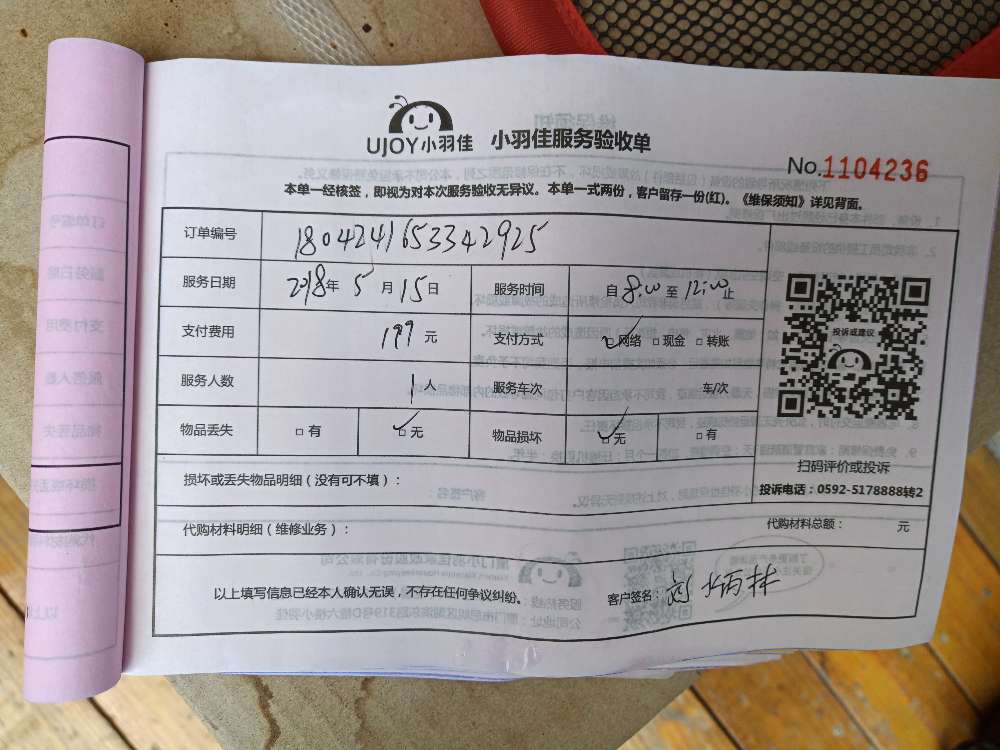 UJOY小羽佳 小羽佳服务验收单
No.1104236
本单一经核签，即视为对本次服务验收无异议。本单一式两份，客户留存一份(红)。《维保须知》详见背面。
订单编号 1804241653342925
服务日期 2018年 5 月 15 日 服务时间 自 8:00 至 12:00 止
支付费用 199 元 支付方式 ☑网络 □现金 □转账
服务人数 1 人 服务车次 车/次
物品丢失 □有 ☑无 物品损坏 ☑无 □有
投诉或建议
扫码评价或投诉
投诉电话：0592-5178888转2
损坏或丢失物品明细（没有可不填）：
代购材料明细（维修业务）： 代购材料总额： 元
以上填写信息已经本人确认无误，不存在任何争议纠纷。 客户签名：